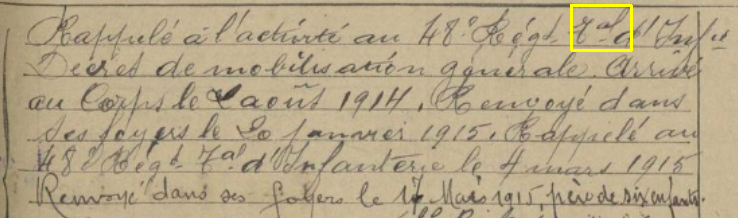 Rappelé à l'activité au 48e Régt Tal d'Infie
Décret de mobilisation générale. Arrivé
au Corps le 2 août 1914. Renvoyé dans
ses foyers le 20 janvier 1915. Rappelé au
48e Régt Tal d'Infanterie le 4 mars 1915
Renvoyé dans ses foyers le 17 Mars 1915, père de six enfants.